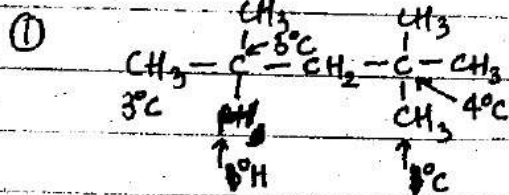 ①
CH₃ CH₃
CH₃ — C — CH₂ — C — CH₃
3°C 3°C 4°C
CH₃
°H °C